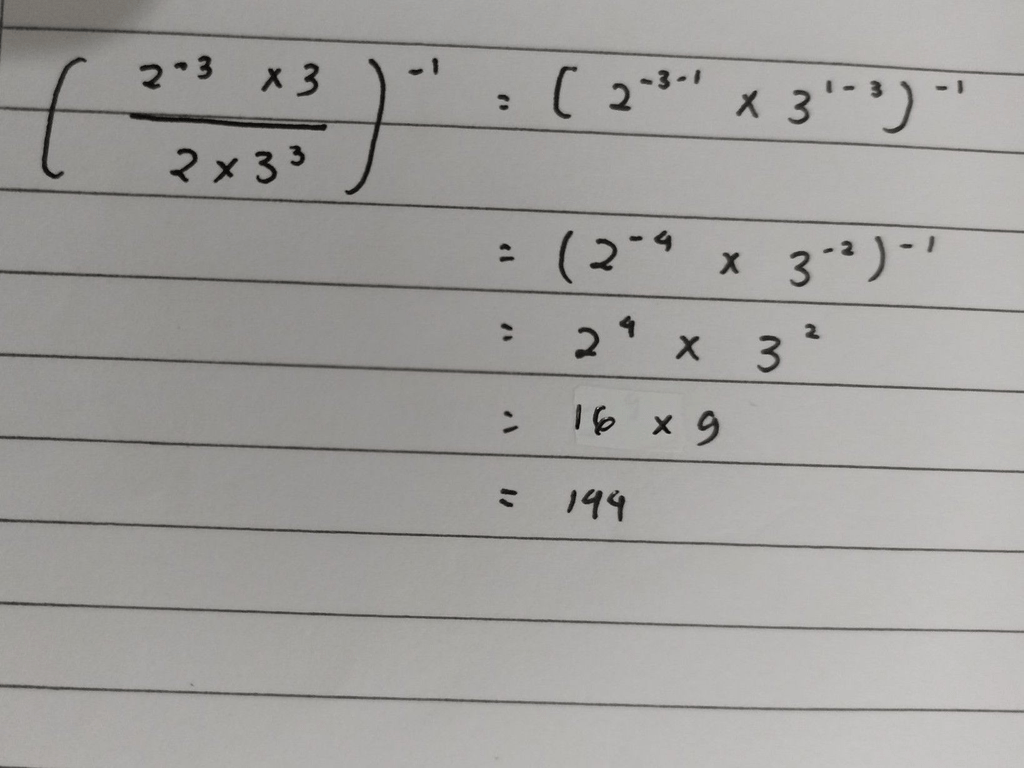 ( 2⁻³ × 3 / 2 × 3³ )⁻¹ = ( 2⁻³⁻¹ × 3¹⁻³ )⁻¹
= ( 2⁻⁴ × 3⁻² )⁻¹
= 2⁴ × 3²
= 16 × 9
= 144